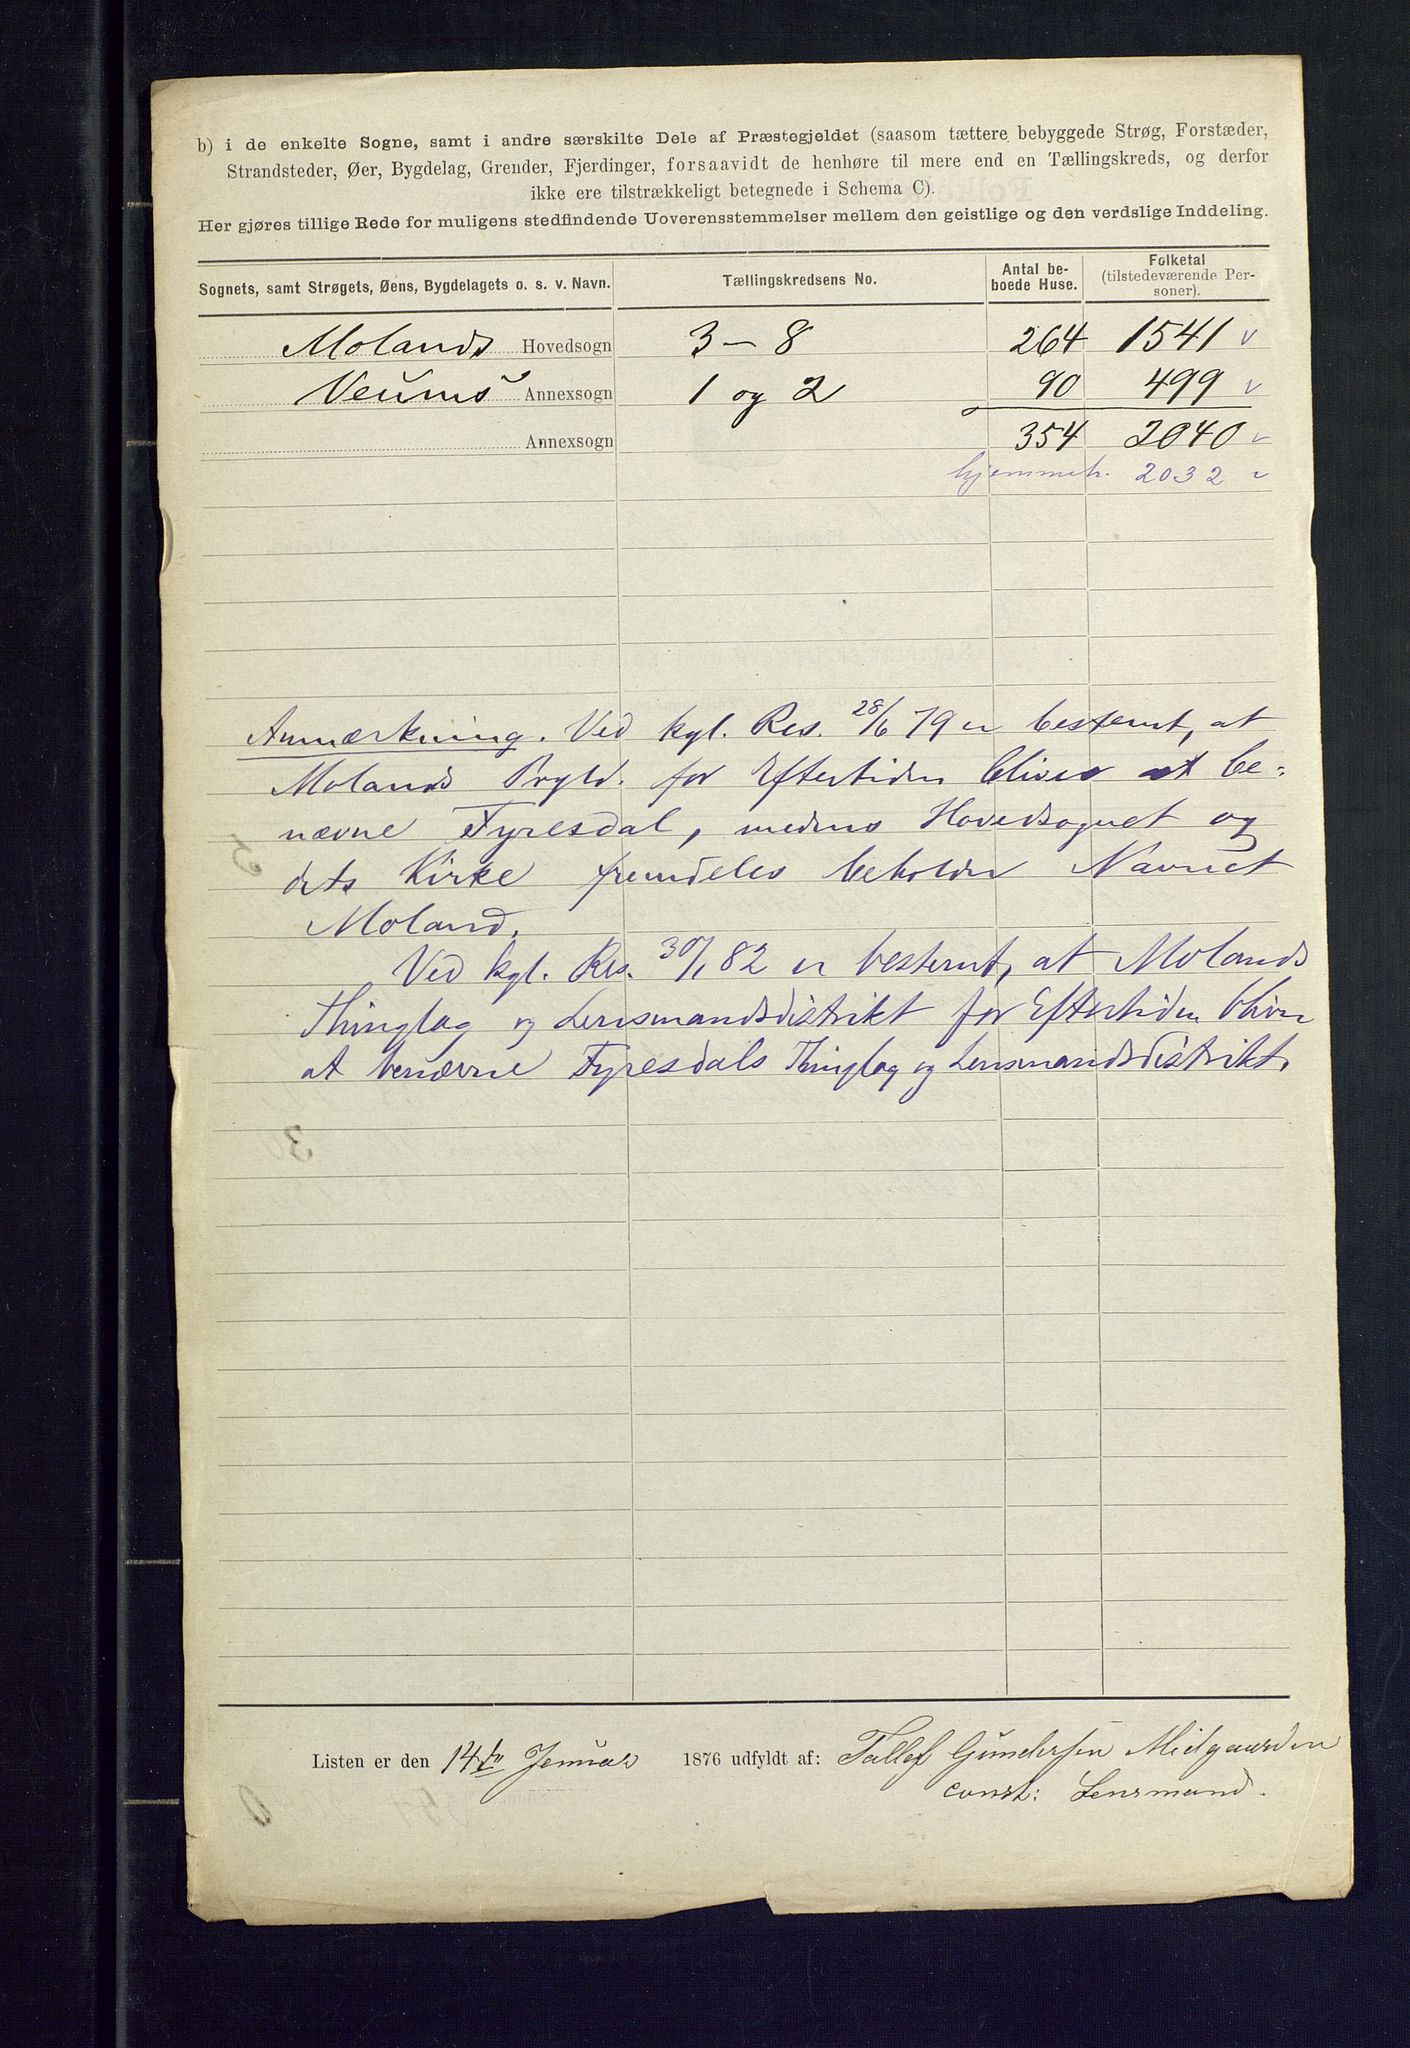 b) i de enkelte Sogne, samt i andre særskilte Dele af Præstegjeldet (saasom tættere bebyggede Strøg, Forstæder,
Strandsteder, Øer, Bygdelag, Grender, Fjerdinger, forsaavidt de henhøre til mere end en Tællingskreds, og derfor
ikke ere tilstrækkeligt betegnede i Schema C).
Her gjøres tillige Rede for muligens stedfindende Uoverensstemmelser mellem den geistlige og den verdslige Inddeling.
Sognets, samt Strøgets, Øens, Bygdelagets o. s. v. Navn. Tællingskredsens No. Antal be-boede Huse. Folketal (tilstedeværende Per-soner).
Molands Hovedsogn 3 – 8 264 1541 v
Veums Annexsogn 1 og 2 90 499 v
Annexsogn 354 2040 v
hjemmeh. 2032 v
Anmærkning. Ved kgl. Res. 28/6 79 er bestemt, at
Molands Prgld. for Eftertiden bliver at be-
nævne Fyresdal, medens Hovedsognet og
dets Kirke fremdeles beholder Navnet
Moland.
Ved kgl. Res. 30/1 82 er bestemt, at Molands
Thinglag og Lensmandsdistrikt for Eftertiden bliver
at benævne Fyresdals Thinglag og Lensmandsdistrikt.
Listen er den 14de Januar 1876 udfyldt af: Tallef Gundersen Midgaarden
const: Lensmand.